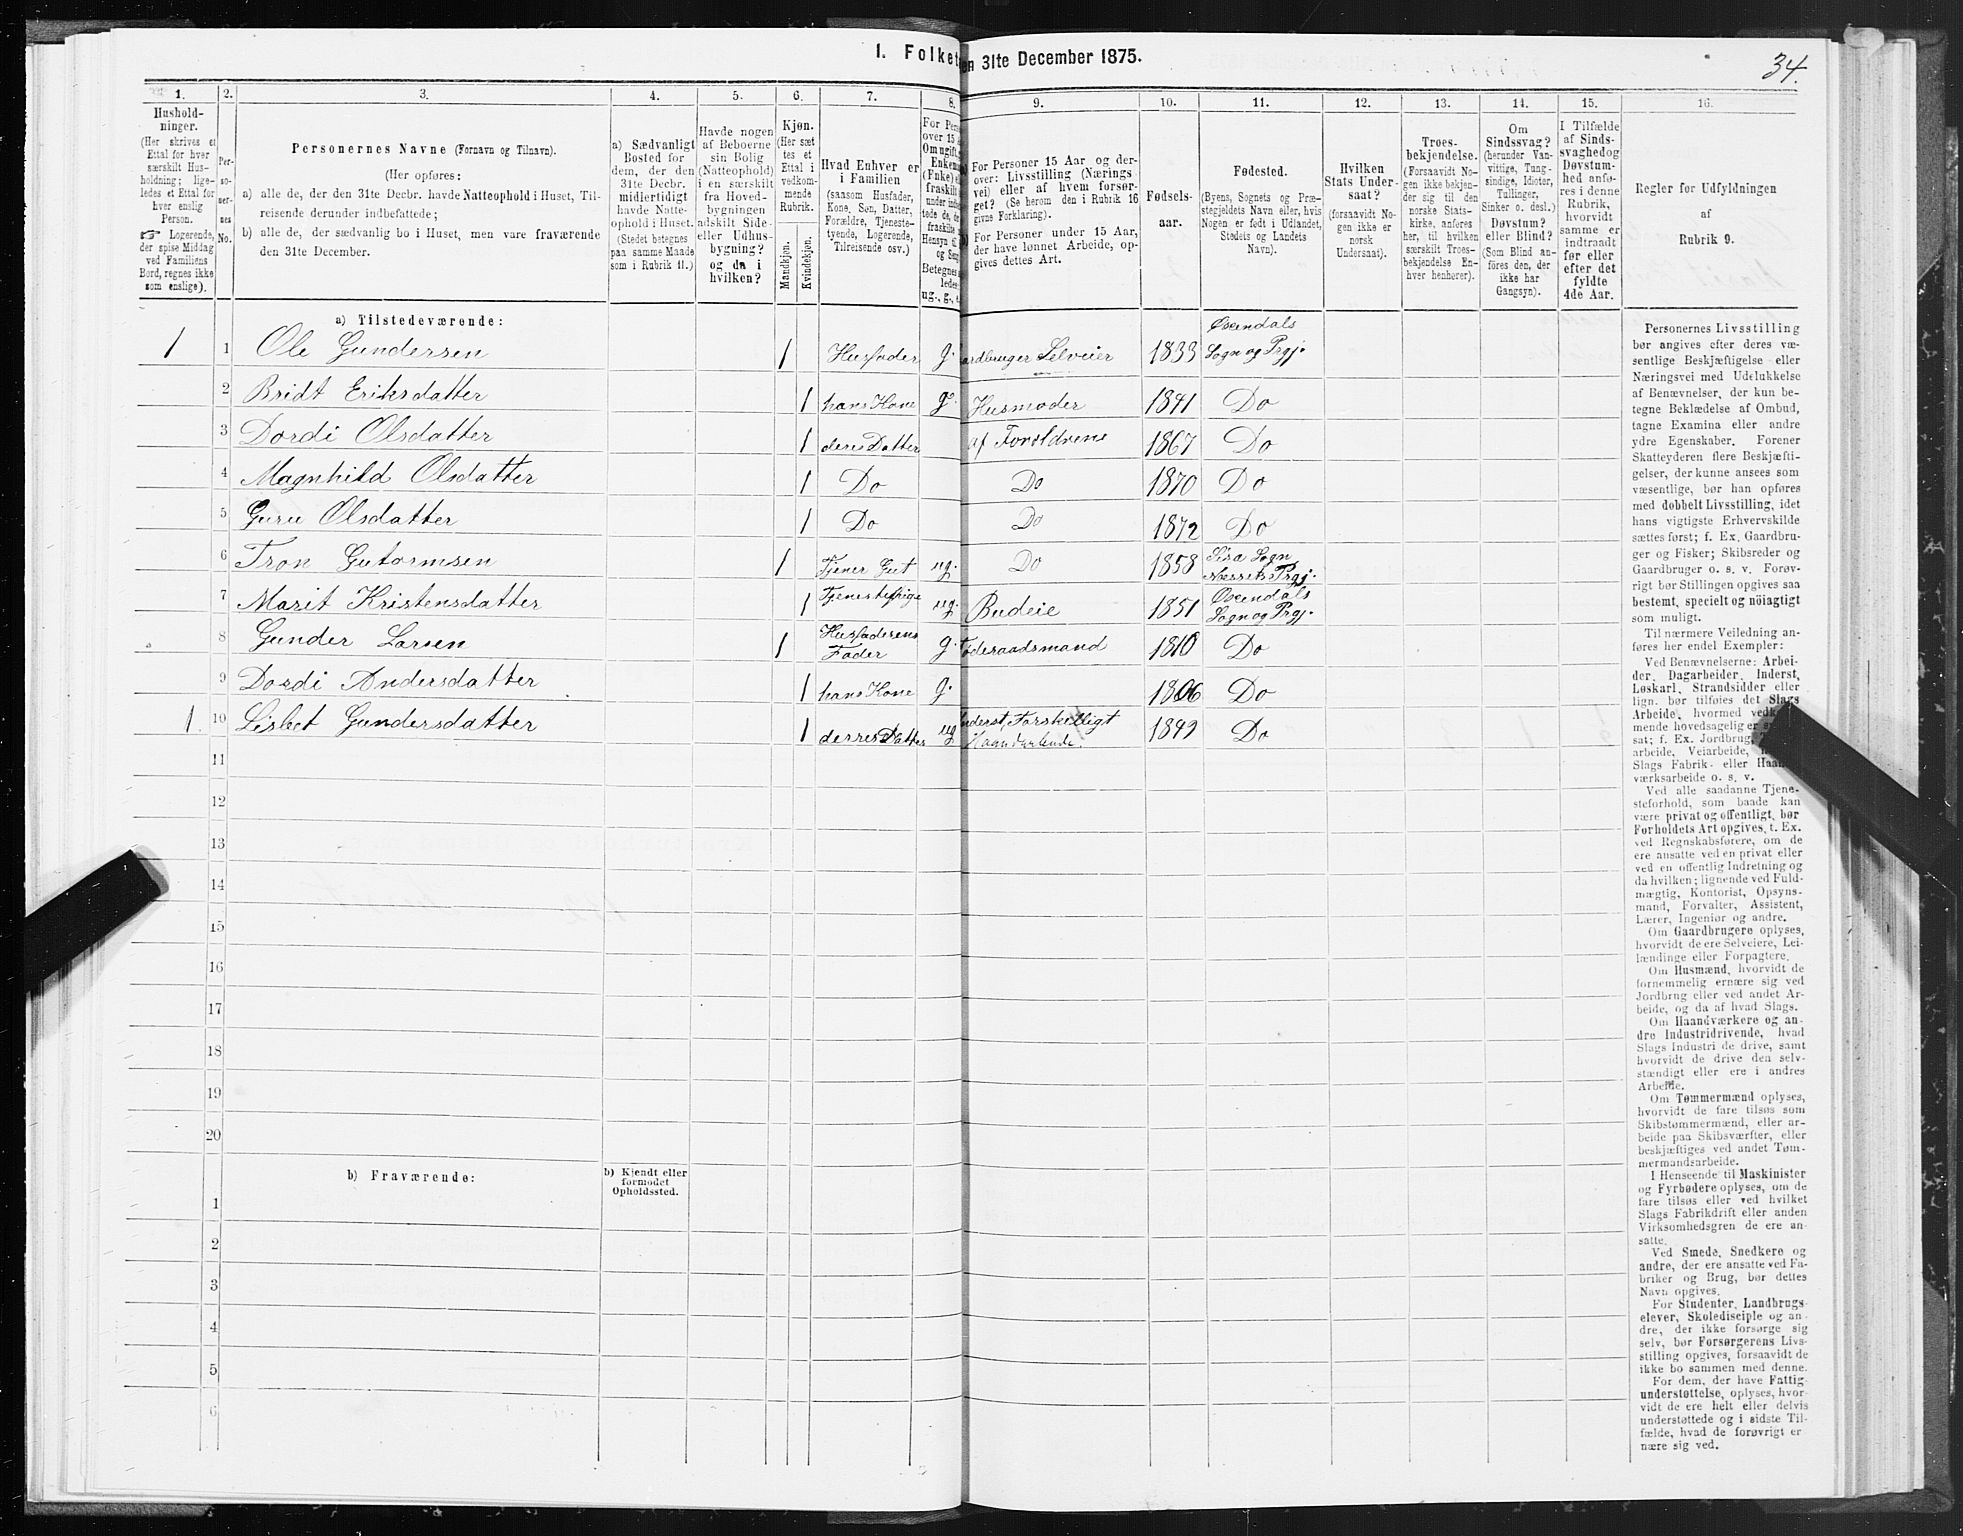 1. Folket en 31te December 1875.
34.
1. 2. 3. 4. 5. 6. 7. 8. 9. 10. 11. 12. 13. 14. 15. 16.
Hushold-
ninger.
(Her skrives et
Ettal for hver
særskilt Hus-
holdning; lige-
ledes et Ettal for
hver enslig
Person.
☞ Logerende,
der spise Middag
ved Familiens
Bord, regnes ikke
som enslige).
Per-
so-
ner-
nes
No.
Personernes Navne (Fornavn og Tilnavn).
(Her opføres:
a) alle de, der den 31te Decbr. havde Natteophold i Huset, Til-
reisende derunder indbefattede;
b) alle de, der sædvanlig bo i Huset, men vare fraværende
den 31te December.
a) Sædvanligt
Bosted for
dem, der den
31te Decbr.
midlertidigt
havde Natte-
ophold i Huset.
(Stedet betegnes
paa samme Maade
som i Rubrik 11.)
Havde nogen
af Beboerne
sin Bolig
(Natteophold)
i en særskilt
fra Hoved-
bygningen
adskilt Side-
eller Udhus-
bygning?
og da i
hvilken?
Kjøn.
(Her sæt
tes et
Ettal i
vedkom-
mende
Rubrik.
Mandkjøn.
Kvindekjøn.
Hvad Enhver er
i Familien
(saasom Husfader,
Kone, Søn, Datter,
Forældre, Tjeneste-
tyende, Logerende,
Tilreisende osv.)
For Pers
over 15 A
Om ugift,
Enkem
(Enke) e
fraskilt
under indb
tede de, d
fraskilte
Hensyn til
og Seng
Betegnes
ledes
ug., g., e.
For Personer 15 Aar og der-
over: Livsstilling (Nærings
vei) eller af hvem forsør-
get? (Se herom den i Rubrik 16
givne Forklaring).
For Personer under 15 Aar,
der have lønnet Arbeide, op-
gives dettes Art.
Fødsels-
aar.
Fødested.
(Byens, Sognets og Præ-
stegjeldets Navn eller, hvis
Nogen er født i Udlandet,
Stedets og Landets
Navn).
Hvilken
Stats Under-
saat?
(forsaavidt No-
gen ikke er
norsk
Undersaat).
Troes-
bekjendelse.
(Forsaavidt No-
gen ikke bekjen-
der sig til den
norske Stats-
kirke, anføres
her, til hvilken
særskilt Troes-
bekjendelse En-
hver henhører).
Om
Sindssvag?
(herunder Van-
vittige, Tung-
sindige, Idioter,
Tullinger,
Sinker o. desl.)
Døvstum?
eller Blind?
(Som Blind an-
føres den, der
ikke har
Gangsyn).
I Tilfælde
af Sinds-
svaghedog
Døvstum-
hed anfø-
res i denne
Rubrik,
hvorvidt
samme er
indtraadt
før eller
efter det
fyldte
4de Aar.
Regler for Udfyldningen
af
Rubrik 9.
a) Tilstedeværende:
1 1 Ole Gundersen 1 Husfader g. ardbruger Selveier 1833 Øxendals Sogn og Prgj.
2 Bridt Eriksdatter 1 hans Kone g. Husmoder 1841 Do
3 Dordi Olsdatter 1 deres Datter af Foreldrene 1867 Do
4 Magnhild Olsdatter 1 Do Do 1870 Do
5 Guru Olsdatter 1 Do Do 1872 Do
6 Tron Gutormsen 1 Tjener Gut ug. Do 1858 Sira Sogn Nessets Prgj.
7 Marit Kristensdatter 1 Tjenestepige ug. Budeie 1851 Øxendals Sogn og Prgj.
8 Gunder Larsen 1 Husfaderens Fader g. øderaadsmand 1810 Do
9 Dordi Andersdatter 1 hans Kone g. 1806 Do
1. 10 Lisbet Gundersdatter 1 derres Datter ug nderst, Forskelligt 1849 Do
11
12
13
14
15
16
17
18
19
20
b) Fraværende:
b) Kjendt eller
formodet
Opholdssted.
1
2
3
4
5
6
Personernes Livsstilling
bør angives efter deres væ-
sentlige Beskjæftigelse eller
Næringsvei med Udelukkelse
af Benævnelser, der kun be-
tegne Beklædelse af Ombud,
tagne Examina eller andre
ydre Egenskaber. Forener
Skatteyderen flere Beskjæfti-
gelser, der kunne ansees som
væsentlige, bør han opføres
med dobbelt Livsstilling, idet
hans vigtigste Erhvervskilde
sættes først; f. Ex. Gaardbru-
ger og Fisker; Skibsreder og
Gaardbruger o. s. v. Forøv-
rigt bør Stillingen opgives saa
bestemt, specielt og nöiagtigt
som muligt.
Til nærmere Veiledning an-
føres her endel Exempler:
Ved Benævnelserne: Arbei-
der, Dagarbeider, Inderst,
Løskarl, Strandsidder eller
lign. bør tilføies det Slags
Arbeide, hvormed vedk
mende hovedsagelig er
sat; f. Ex. Jordbrug,
arbeide, Veiarbeide,
Slags Fabrik- eller Haan
værksarbeide o. s. v.
Ved alle saadanne Tjene-
steforhold, som baade kan
være privat og offentligt, bør
Forholdets Art opgives, t. Ex.
ved Regnskabsførere, om de
ere ansatte ved en privat eller
ved en offentlig Indretning og
da hvilken; lignende ved Fuld-
mægtig, Kontorist, Opsyns-
mand, Forvalter, Assistent,
Lærer, Ingeniør og andre.
Om Gaardbrugere oplyses,
hvorvidt de ere Selveiere, Lei-
lændinge eller Forpagtere.
Om Husmænd, hvorvidt de
fornemmelig ernære sig ved
Jordbrug eller ved andet Ar-
beide, og da af hvad Slags.
Om Haandværkere og an-
dre Industridrivende, hvad
Slags Industri de drive, samt
hvorvidt de drive den selv-
stændigt eller ere i andres
Arbeide.
Om Tømmermænd oplyses,
hvorvidt de fare tilsøs som
Skibstømmermænd, eller ar-
beide paa Skibsværfter, eller
beskjæftiges ved andet Tøm-
mermandsarbeide.
I Henseende til Maskinister
og Fyrbødere oplyses, om de
fare tilsøs eller ved hvilket
Slags Fabrikdrift eller anden
Virksomhedsgren de ere an-
satte.
Ved Smede, Snedkere og
andre, der ere ansatte ved Fa-
briker og Brug, bør dettes
Navn opgives.
For Studenter, Landbrugs-
elever, Skoledisciple og an-
dre, der ikke forsørge sig
selv, bør Forsørgerens Livs-
stilling opgives, forsaavidt de
ikke bo sammen med denne.
For dem, der have Fattig-
understøttelse, oplyses, hvor-
vidt de ere helt eller delvis
understøttede og i sidste Til-
fælde, hvad de forøvrigt er
nære sig ved.